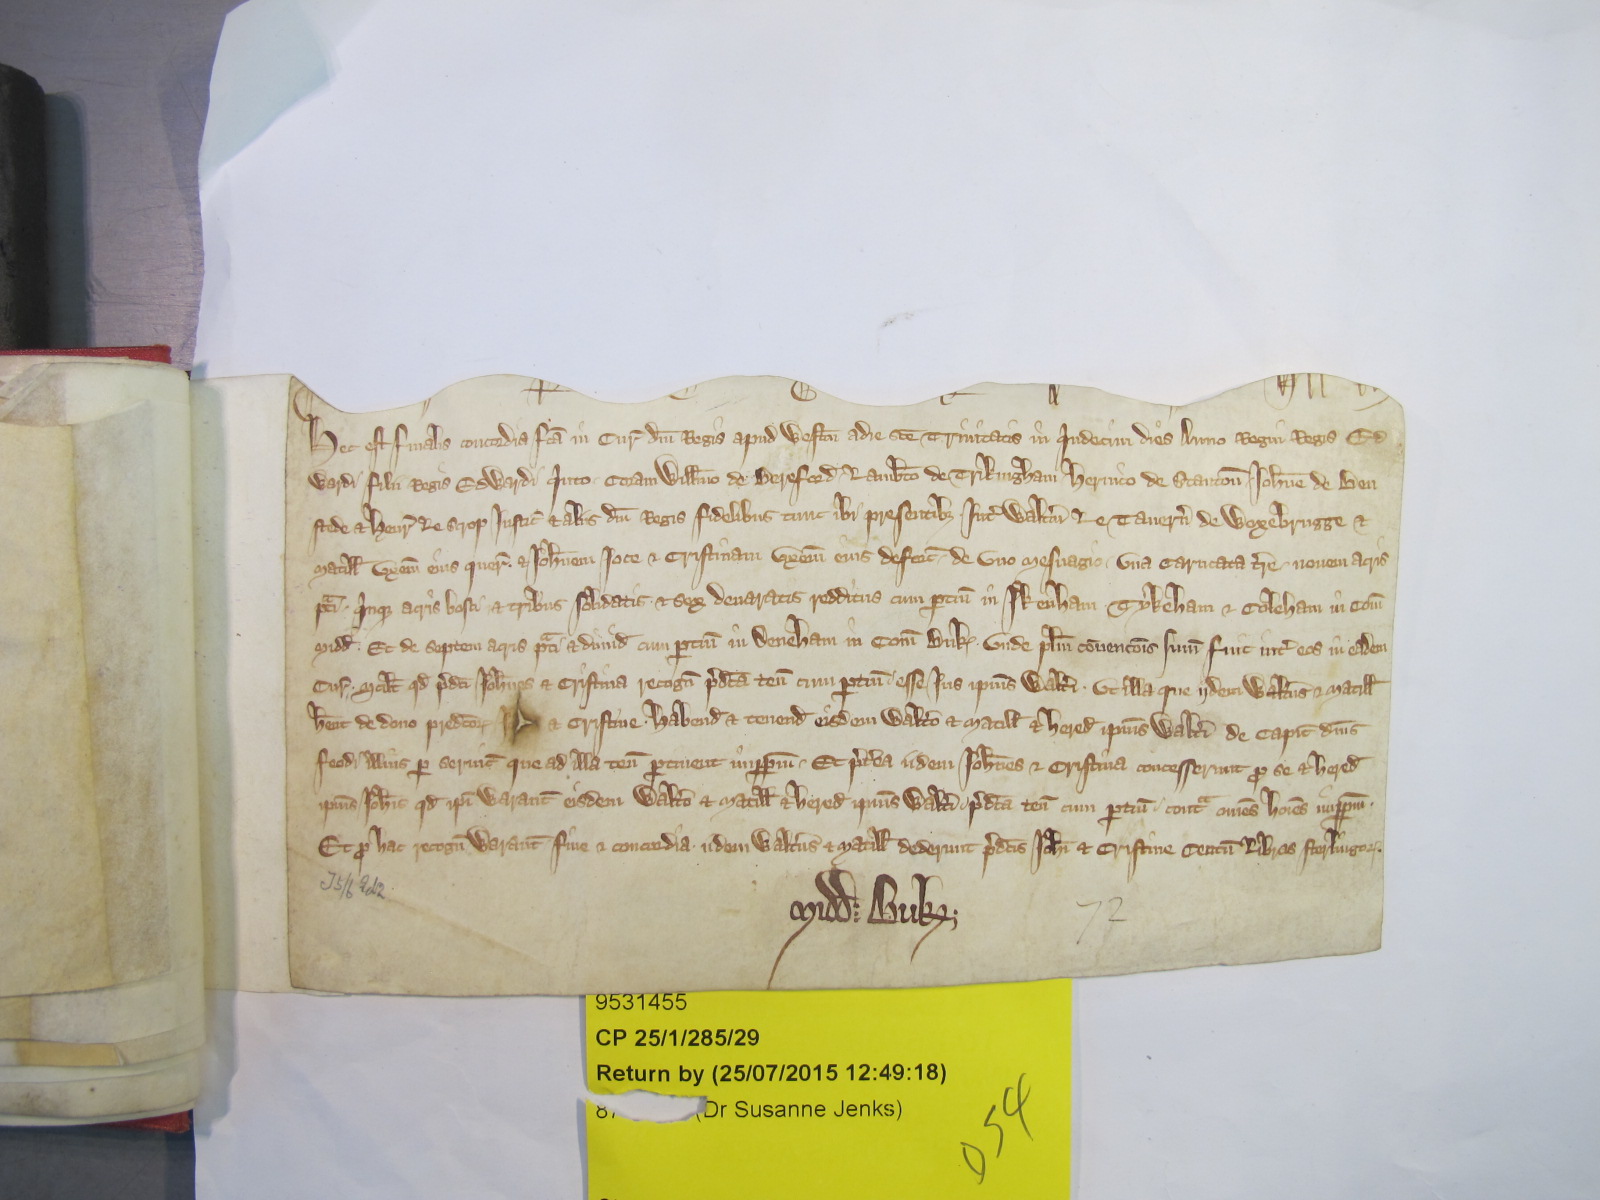 Hec est finalis concordia fca in Cur dni Regis apud Westm a die sce Trinitatis in Quindecim dies Anno Regni Regis Ed
wardi filii Regis Edwardi Quito Coram Willmo de Bereford Lambto de Trikingham Henrico de Stanton Johne de Ben
stede & Henr Le Scrop Justic & aliis dni Regis fidelibus tunc ibi presentibz Int Waltm Le Tavern de Woxebrugge &
Matill uxem eius quer & Johnem Joce & Cristinam uxem eius deforc de uno mesuagio una Carucata tre novem acris
pti Quinqz acris bosci & tribus solidatis & sex denaratis redditus cum ptin in Ikenham Tykeham & Coleham in Com
Midd Et de septem acris pti & dimid cum ptin in Deneham in Com Buk Unde plitm convencois sum fuit int eos in eadem
Cur Scilt qd pdci Johnes & Cristina recogn pdcta ten cum ptin esse Jus ipius Walti Ut illa que iidem Waltus & Matill
hent de dono predcor & Cristine Habend & tenend eisdem Walto & Matill & hered ipius Walti de Capit dnis
feodi illius p servic que ad illa ten ptinent inppm Et pterea iidem Johnes & Cristina concesserunt p se & hered
ipius Johis qd ipi Warant eisdem Walto & Matill & hered ipius Walti pdcta ten cum ptin contra omes hoies inppm
Et p hac recogn Warant fine & concordia iidem Waltus & Matill dederunt pdcis Johi & Cristine Centu Libras sterlingor
Midd: Buk;
72
9531455
CP 25/1/285/29
Return by (25/07/2015 12:49:18)
(Dr Susanne Jenks)
054